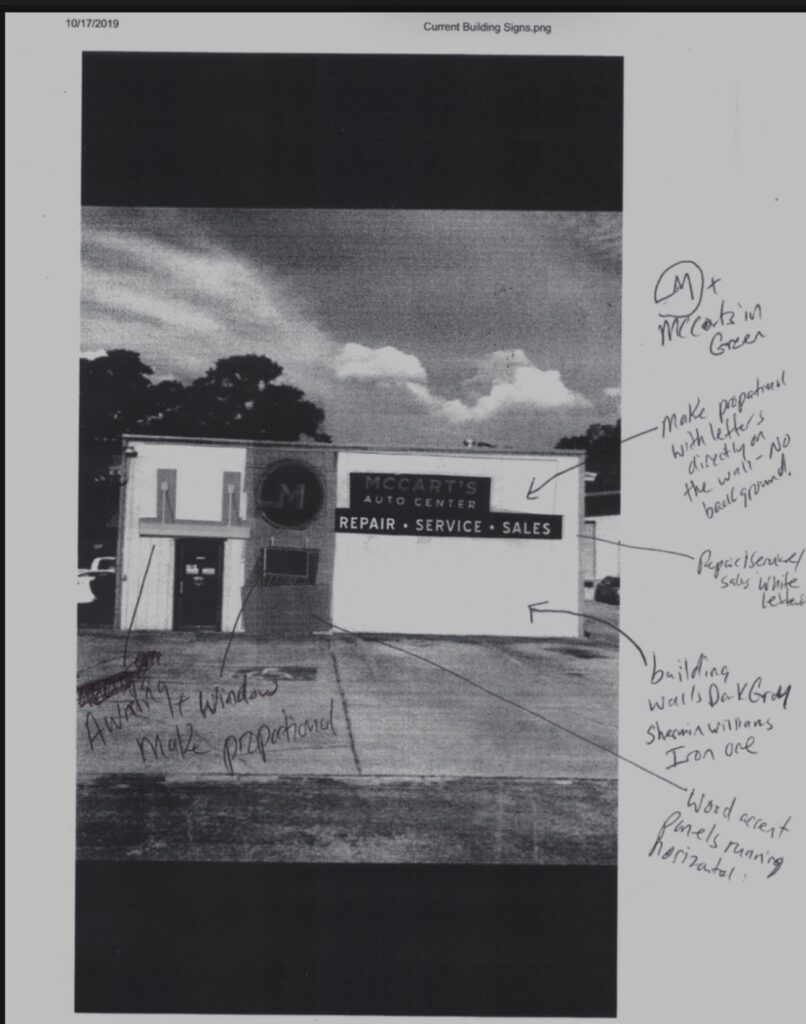 10/17/2019
Current Building Signs.png
M +
McCarts in
Green
Make propational
with letters
directly on
the wall - No
background.
M
MCCART'S
AUTO CENTER
REPAIR • SERVICE • SALES
Repair/Service/
sales white
letters
building
walls Dark Gray
Sherwin Williams
Iron ore
Awning + Window
Make propational
Wood accent
panels running
horizontal.